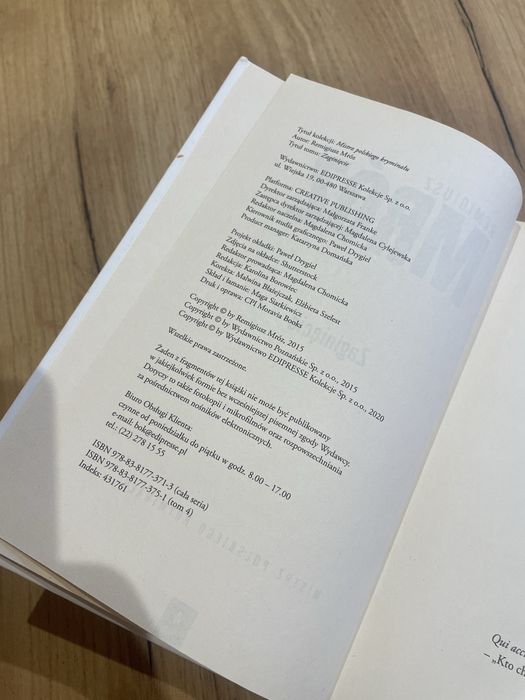 Tytuł kolekcji: Mistrz polskiego kryminału
Autor: Remigiusz Mróz
Tytuł tomu: Zaginięcie
Wydawnictwo: EDIPRESSE Kolekcje Sp. z o.o.
ul. Wiejska 19, 00-480 Warszawa
Platforma: CREATIVE PUBLISHING
Dyrektor zarządzająca: Małgorzata Franke
Zastępca dyrektor zarządzającej: Magdalena Cylejewska
Redaktor naczelna: Magdalena Chomicka
Kierownik studia graficznego: Paweł Drygiel
Product manager: Katarzyna Domańska
Projekt okładki: Paweł Drygiel
Zdjęcia na okładce: Shutterstock
Redaktor prowadząca: Magdalena Chomicka
Redakcja: Karolina Borowiec
Korekta: Malwina Błażejczak, Elżbieta Szelest
Skład i łamanie: Maga Siarkiewicz
Druk i oprawa: CPI Moravia Books
Copyright © by Remigiusz Mróz, 2015
Copyright © by Wydawnictwo Poznańskie Sp. z o.o., 2015
Copyright © by Wydawnictwo EDIPRESSE Kolekcje Sp. z o.o., 2020
Wszelkie prawa zastrzeżone.
Żaden z fragmentów tej książki nie może być publikowany
w jakiejkolwiek formie bez wcześniejszej pisemnej zgody Wydawcy.
Dotyczy to także fotokopii i mikrofilmów oraz rozpowszechniania
za pośrednictwem nośników elektronicznych.
Biuro Obsługi Klienta:
czynne od poniedziałku do piątku w godz. 8.00 – 17.00
e-mail: bok@edipresse.pl
tel.: (22) 278 15 55
ISBN 978-83-8177-371-3 (cała seria)
ISBN 978-83-8177-375-1 (tom 4)
Indeks: 431761
Qui acc
– „Kto ch